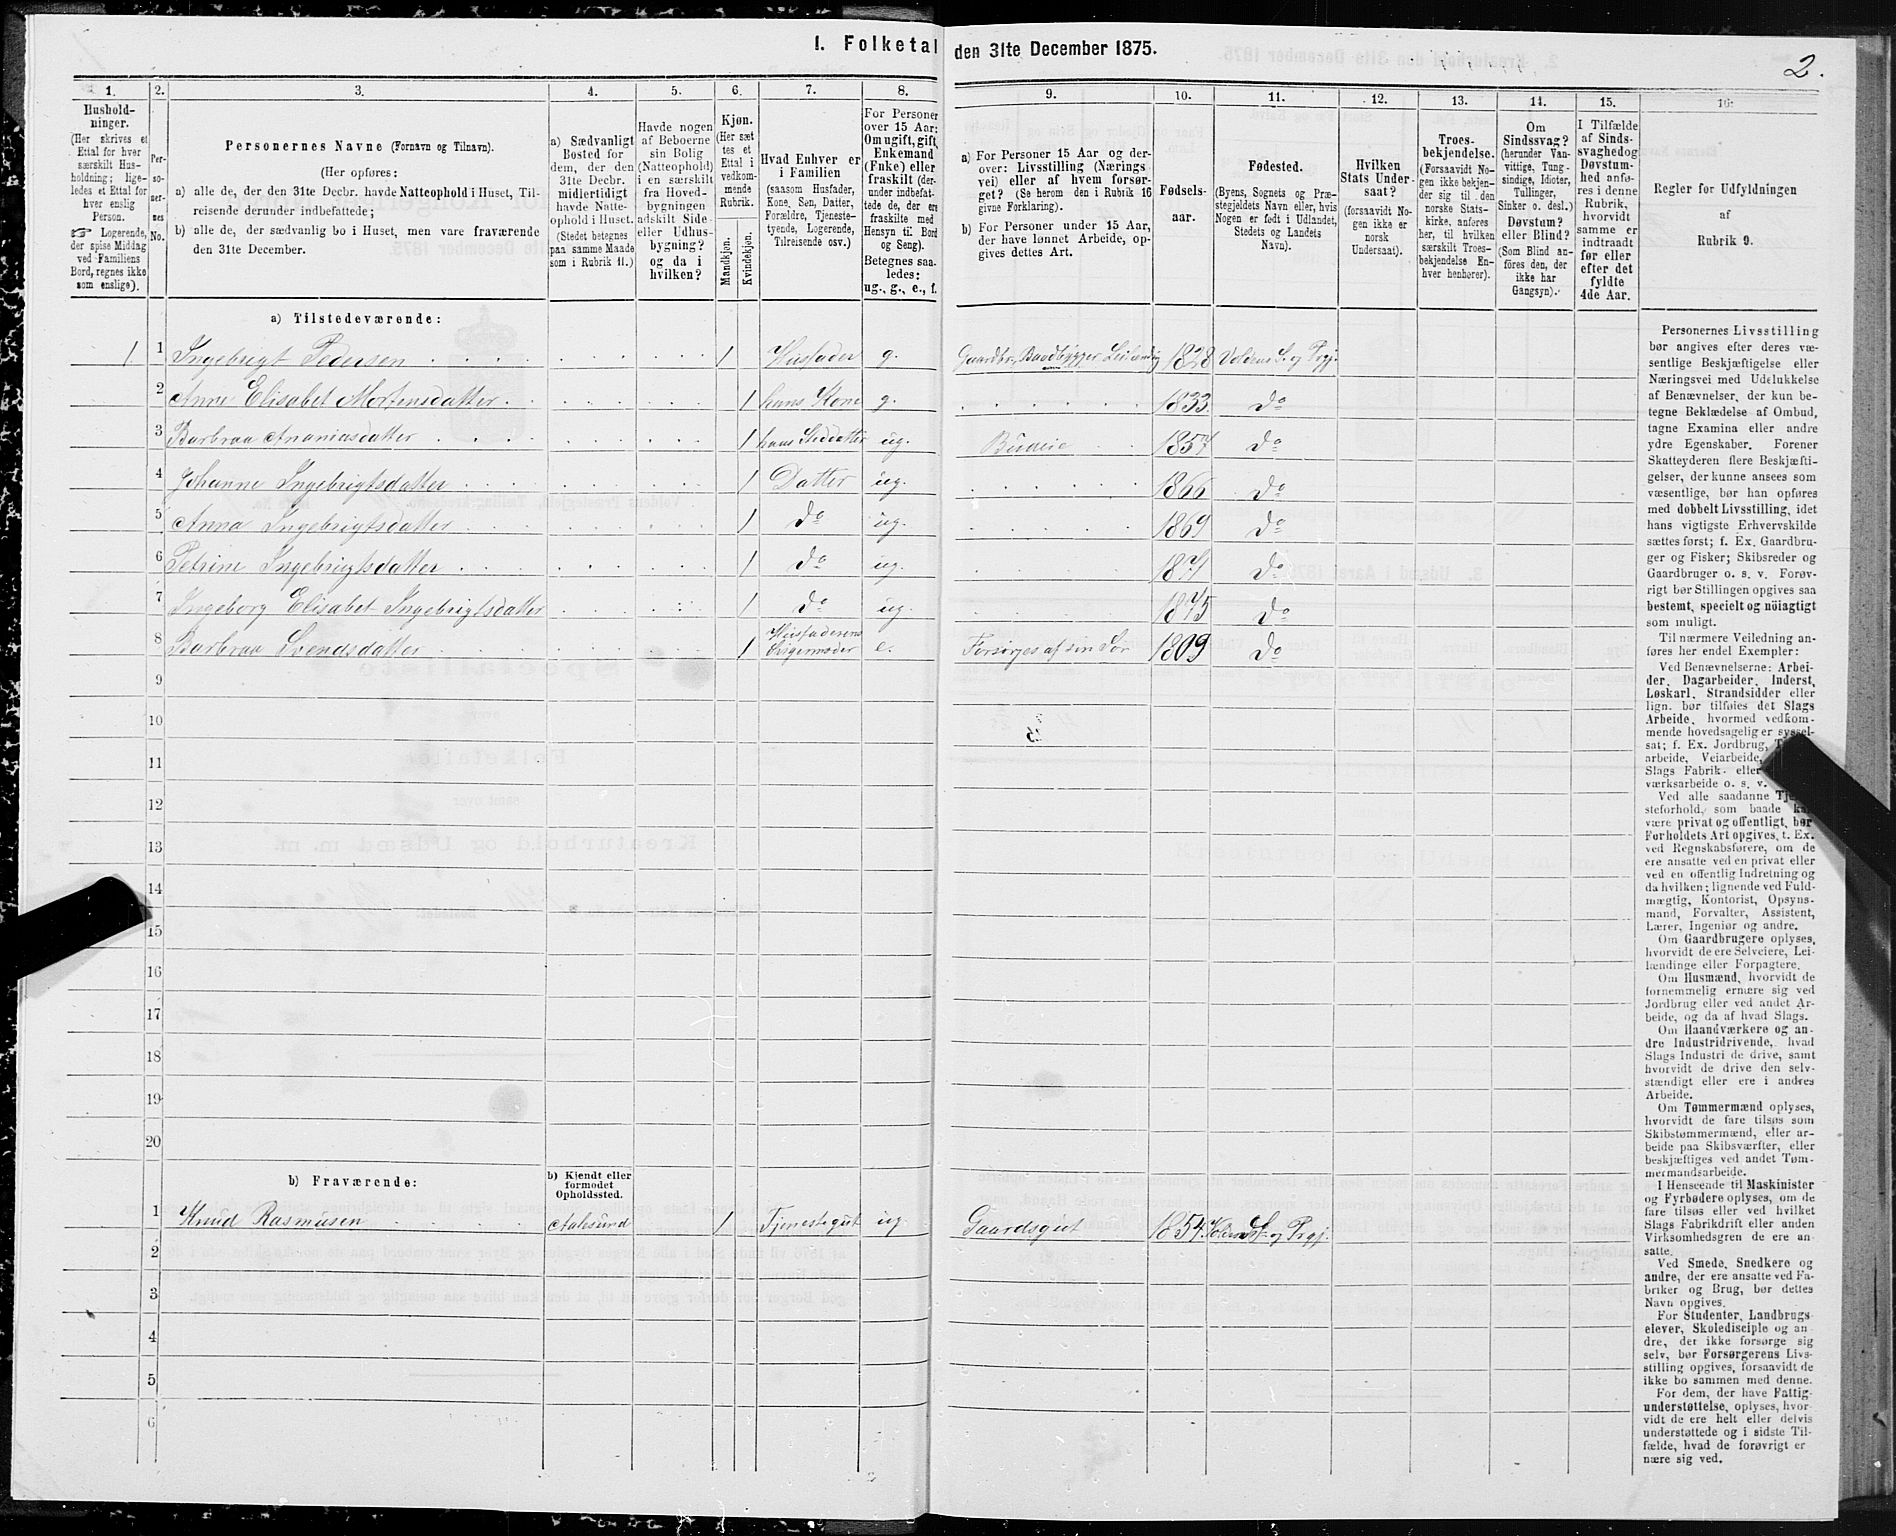 I. Folketal den 31te December 1875.
2.
1. 2. 3. 4. 5. 6. 7. 8. 9. 10. 11. 12. 13. 14. 15. 16.
Hushold-
ninger.
(Her skrives et
Ettal for hver
særskilt Hus-
holdning; lige-
ledes et Ettal for
hver enslig
Person.
☞ Logerende,
der spise Middag
ved Familiens
Bord, regnes ikke
som enslige).
Per-
so-
ner-
nes
No.
Personernes Navne (Fornavn og Tilnavn).
(Her opføres:
a) alle de, der den 31te Decbr. havde Natteophold i Huset, Til-
reisende derunder indbefattede;
b) alle de, der sædvanlig bo i Huset, men vare fraværende
den 31te December.
a) Sædvanligt
Bosted for
dem, der den
31te Decbr.
midlertidigt
havde Natte-
ophold i Huset.
(Stedet betegnes
paa samme Maade
som i Rubrik 11.)
Havde nogen
af Beboerne
sin Bolig
(Natteophold)
i en særskilt
fra Hoved-
bygningen
adskilt Side-
eller Udhus-
bygning?
og da i
hvilken?
Kjøn.
(Her sæt-
tes et
Ettal i
vedkom-
mende
Rubrik.
Mandkjøn.
Kvindekjøn.
Hvad Enhver er
i Familien
(saasom Husfader,
Kone, Søn, Datter,
Forældre, Tjeneste-
tyende, Logerende,
Tilreisende osv.)
For Personer
over 15 Aar:
Om ugift, gift,
Enkemand
(Enke) eller
fraskilt (der-
under indbefat-
tede de, der ere
fraskilte med
Hensyn til Bord
og Seng).
Betegnes saa-
ledes:
ug., g., e., f.
a) For Personer 15 Aar og der-
over: Livsstilling (Nærings-
vei) eller af hvem forsør-
get? (Se herom den i Rubrik 16
givne Forklaring).
b) For Personer under 15 Aar,
der have lønnet Arbeide, op-
gives dettes Art.
Fødsels-
aar.
Fødested.
(Byens, Sognets og Præ-
stegjeldets Navn eller, hvis
Nogen er født i Udlandet,
Stedets og Landets
Navn).
Hvilken
Stats Under-
saat?
(forsaavidt No-
gen ikke er
norsk
Undersaat).
Troes-
bekjendelse.
(Forsaavidt No-
gen ikke bekjen-
der sig til den
norske Stats-
kirke, anføres
her, til hvilken
særskilt Troes-
bekjendelse En-
hver henhører).
Om
Sindssvag?
(herunder Van-
vittige, Tung-
sindige, Idioter,
Tullinger,
Sinker o. desl.)
Døvstum?
eller Blind?
(Som Blind an-
føres den, der
ikke har
Gangsyn).
I Tilfælde
af Sinds-
svaghed og
Døvstum-
hed anfø-
res i denne
Rubrik,
hvorvidt
samme er
indtraadt
før eller
efter det
fyldte
4de Aar.
Regler for Udfyldningen
af
Rubrik 9.
a) Tilstedeværende:
1. 1 Ingebrigt Pedersen 1 Husfader g. Gaardbr., Baadbygger Leilændig 1828 Voldens S. og Prgj.
2 Anne Elisabet Mortensdatter 1 hans Kone g. 1833 do
3 Barbraa Ananiasdatter 1 hans Steddatter ug. Budeie 1857 do
4 Johanne Ingebrigtsdatter 1 Datter ug. 1866 do
5 Anna Ingebrigtsdatter 1 do ug. 1869 do
6 Petrine Ingebrigtsdatter 1 do ug. 1871 do
7 Ingeborg Elisabet Ingebrigtsdatter 1 do ug. 1875 do
8 Barbraa Svendsdatter 1 Husfaderens Svigermoder e. Forsørges af sin Søn 1809 do
9
10
11
12
13
14
15
16
17
18
19
20
b) Fraværende:
b) Kjendt eller
formodet
Opholdssted.
1 Knud Rasmusen Aalesund 1 Tjenestegut ug. Gaardsgut 1854 Voldens S. og Prgj.
2
3
4
5
6
Personernes Livsstilling
bør angives efter deres væ-
sentlige Beskjæftigelse eller
Næringsvei med Udelukkelse
af Benævnelser, der kun be-
tegne Beklædelse af Ombud,
tagne Examina eller andre
ydre Egenskaber. Forener
Skatteyderen flere Beskjæfti-
gelser, der kunne ansees som
væsentlige, bør han opføres
med dobbelt Livsstilling, idet
hans vigtigste Erhvervskilde
sættes først; f. Ex. Gaardbru-
ger og Fisker; Skibsreder og
Gaardbruger o. s. v. Forøv-
rigt bør Stillingen opgives saa
bestemt, specielt og nöiagtigt
som muligt.
Til nærmere Veiledning an-
føres her endel Exempler:
Ved Benævnelserne: Arbei-
der, Dagarbeider, Inderst,
Løskarl, Strandsidder eller
lign. bør tilføies det Slags
Arbeide, hvormed vedkom-
mende hovedsagelig er syssel-
sat; f. Ex. Jordbrug,
arbeide, Veiarbeide,
Slags Fabrik- eller
værksarbeide o. s. v.
Ved alle saadanne Tje-
steforhold, som baade kan
være privat og offentligt, bør
Forholdets Art opgives, t. Ex.
ved Regnskabsførere, om de
ere ansatte ved en privat eller
ved en offentlig Indretning og
da hvilken; lignende ved Fuld-
mægtig, Kontorist, Opsyns-
mand, Forvalter, Assistent,
Lærer, Ingeniør og andre.
Om Gaardbrugere oplyses,
hvorvidt de ere Selveiere, Lei-
lændinge eller Forpagtere.
Om Husmænd, hvorvidt de
fornemmelig ernære sig ved
Jordbrug eller ved andet Ar-
beide, og da af hvad Slags.
Om Haandværkere og an-
dre Industridrivende, hvad
Slags Industri de drive, samt
hvorvidt de drive den selv-
stændigt eller ere i andres
Arbeide.
Om Tømmermænd oplyses,
hvorvidt de fare tilsøs som
Skibstømmermænd, eller ar-
beide paa Skibsværfter, eller
beskjæftiges ved andet Tøm-
mermandsarbeide.
I Henseende til Maskinister
og Fyrbødere oplyses, om de
fare tilsøs eller ved hvilket
Slags Fabrikdrift eller anden
Virksomhedsgren de ere an-
satte.
Ved Smede, Snedkere og
andre, der ere ansatte ved Fa-
briker og Brug, bør dettes
Navn opgives.
For Studenter, Landbrugs-
elever, Skoledisciple og an-
dre, der ikke forsørge sig
selv, bør Forsørgerens Livs-
stilling opgives, forsaavidt de
ikke bo sammen med denne.
For dem, der have Fattig-
understøttelse, oplyses, hvor-
vidt de ere helt eller delvis
understøttede og i sidste Til-
fælde, hvad de forøvrigt er
nære sig ved.